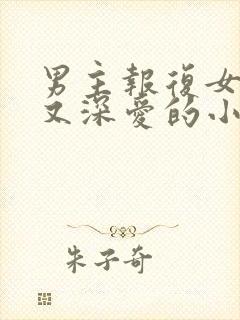 男主報復女
又深愛的小
朱子奇